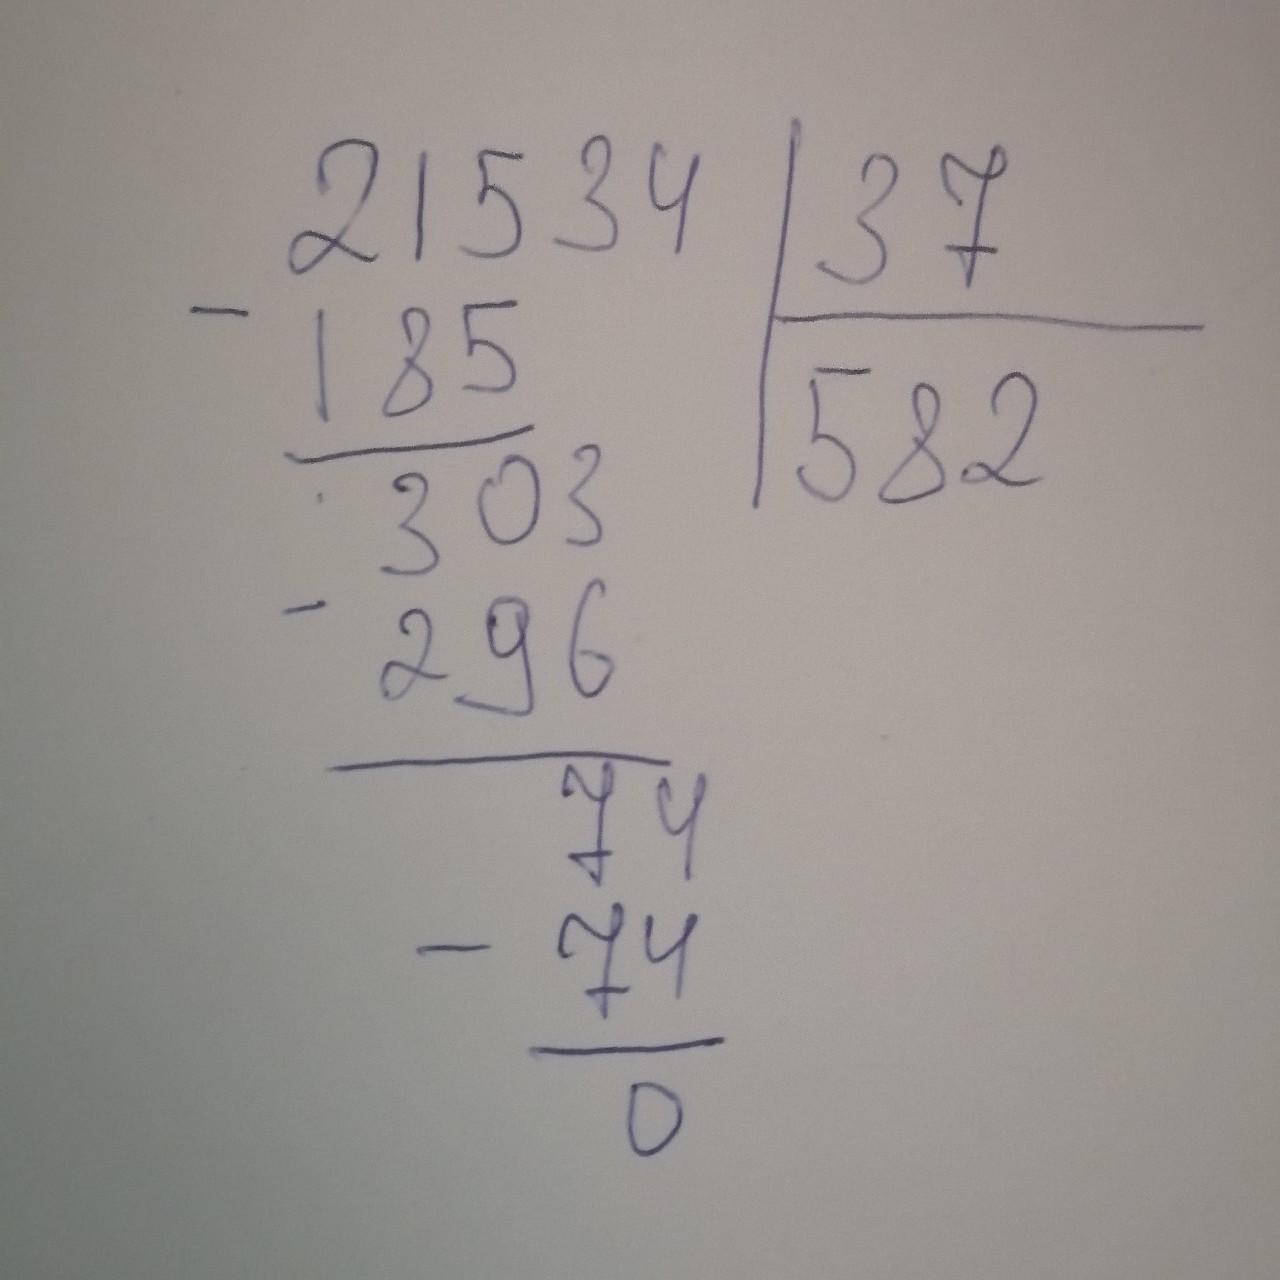 21534 | 37
- 185 | 582
303
- 296
74
- 74
0